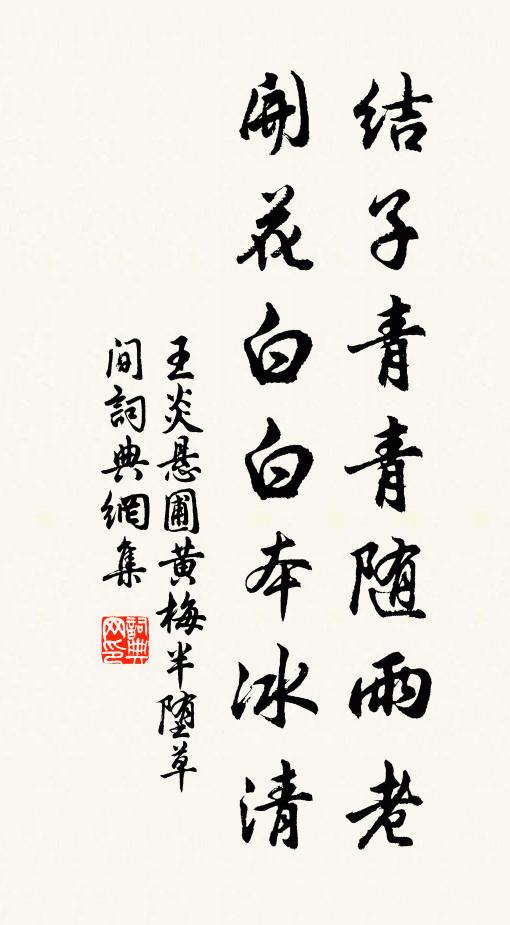 结子青青随雨老
開花白白本冰清
王炎悬圃黄梅半堕草
间詞典網集
詞典网印